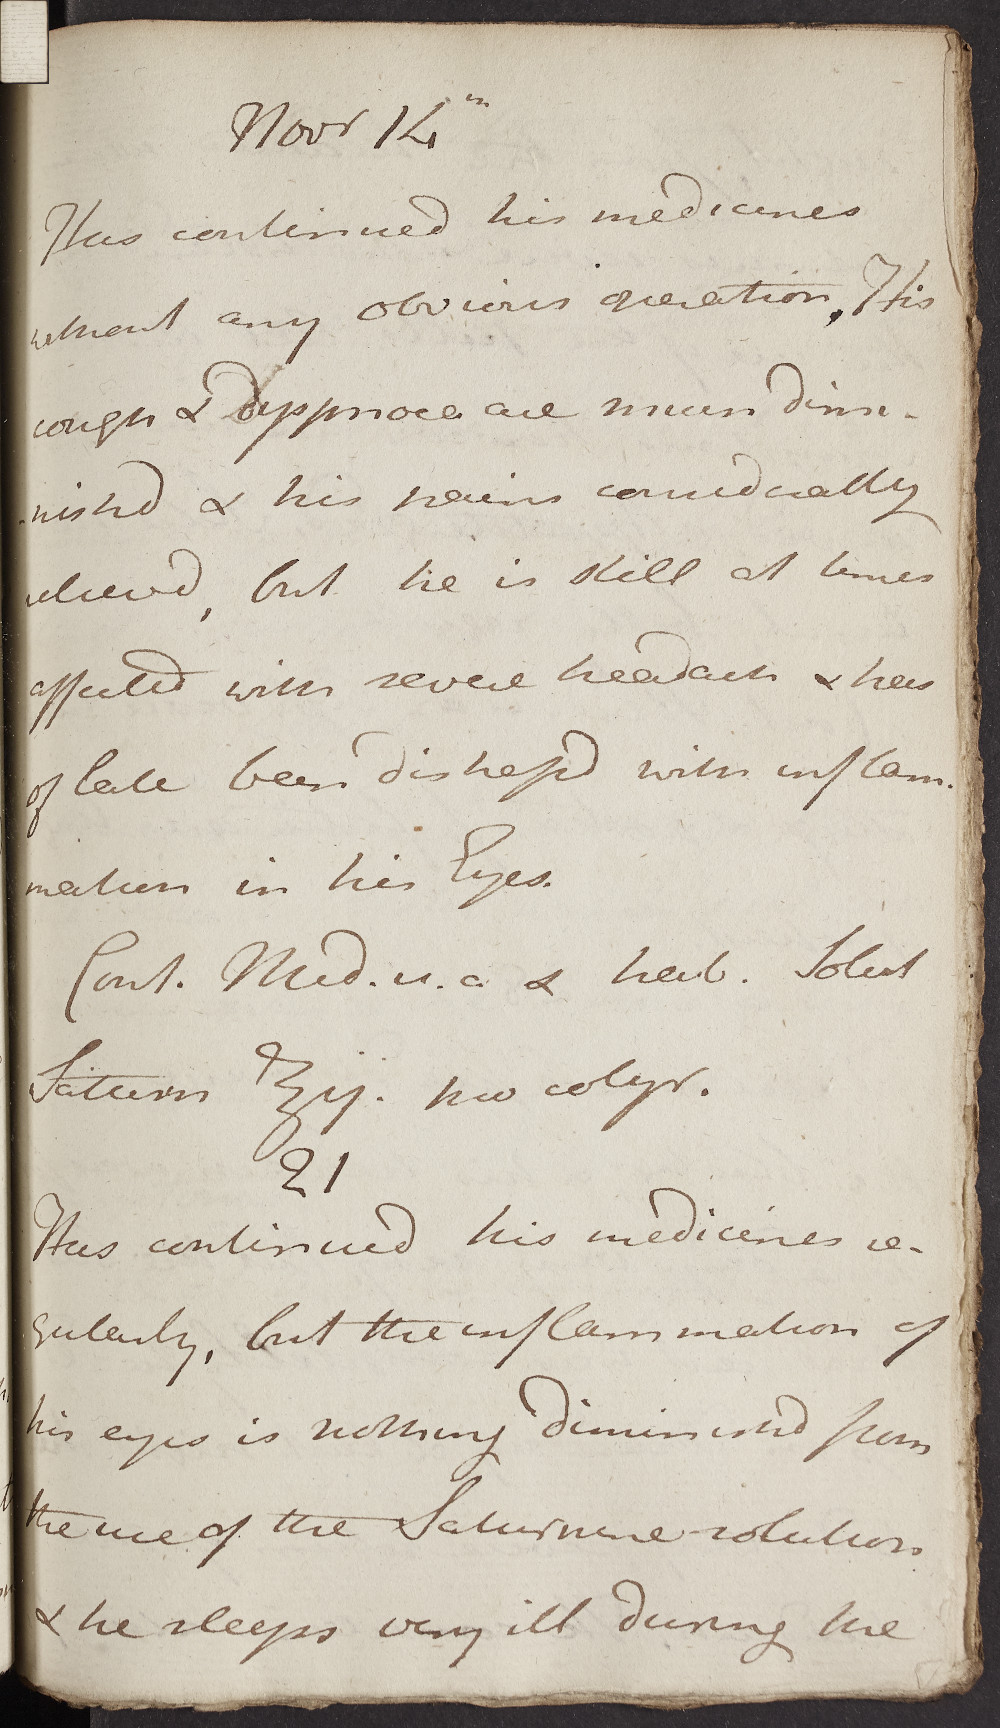 Novr 14th
Has continued his medicines
without any obvious operation, His
cough & dyspnoea are much dimi-
-nishd & his pains considerably
relievd, but he is still at times
affected with severe headach & has
of late been distressd with inflam-
mation in his Eyes.
Cont. Med. u. a. & heab. Solut
Saturn ℥ij. pro colyr.
21
Has continued his medicines re-
gularly, but the inflammation of
his eyes is nothing diminishd from
the use of the Saturnine solution
& he sleeps very ill during the